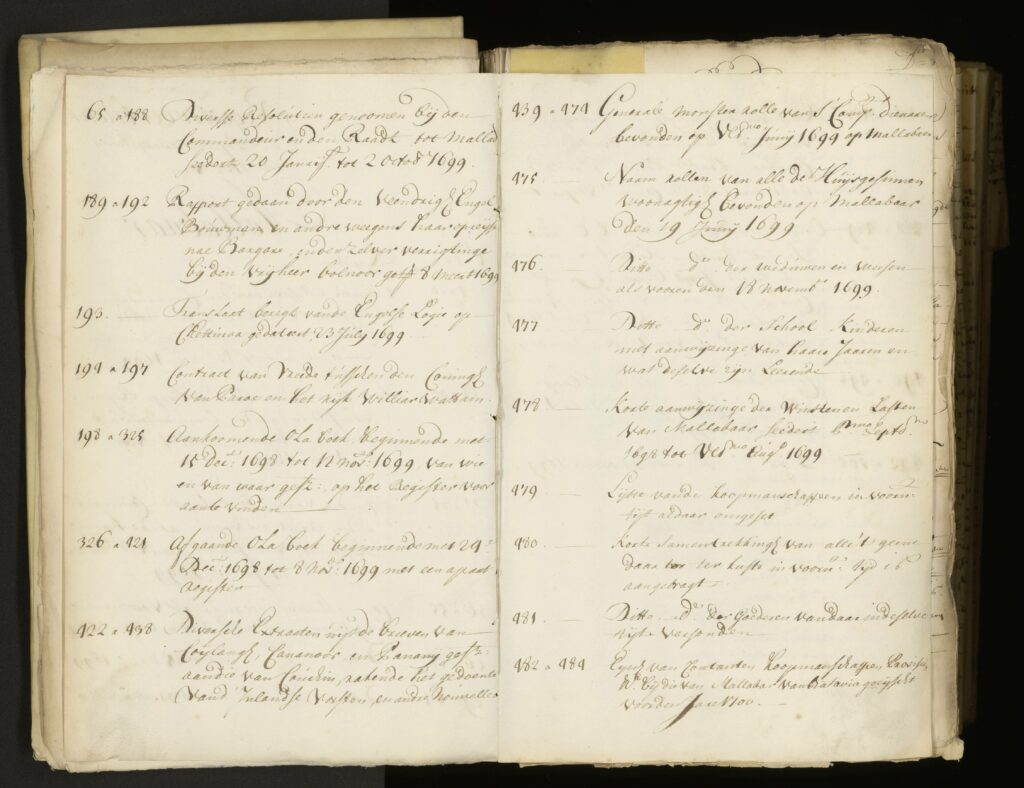 65 a 188 Diversse Resolutien genoomen bij den
Commandeur en den Raadt tot Mallab:
sedert 20 Januarij tot 2 Octob 1699.
189 a 192 Rapport gedaan door den Veendrigh Engel
Bouwman en andre weegens haar
nae en der selver verrigtinge
bij den 8 Meert 1699
193. Translaat berigt vande Engelse Logie op
Chettuwa gedateert 23 July 1699
194 a 197 Contract van Vreede tusschen den Coningh
van en het rijk
198 a 325 Aankoomende Ola boek beginnende met
15 Decb: 1698 tot 12 Novb: 1699 van wie
en van waar gesz: op het Register voor
aan te vinden
326 a 421 Afgaande Ola boek beginnende met 24
Decb: 1698 tot 8 Novb: 1699 met een apart
register
422 a 438 Diversche Extracten uijt de brieven van
Coijlangh, Cananoor en Pananij gesz:
aan die van Couchin, rakende het gedoente
van d' Inlandse Vorsten, en andre Nouvelles
439 a 474 Generale monster rolle van 's Comps. dienaren
bevonden op Ultmo Junij 1699 op Mallabaar
475 Naam rollen van alle de Huijsgesinnen
woonagtigh bevonden op Mallabaar
den 19 Junij 1699
476. Ditto do. der weduwen en weesen
als vooren den 18 Novemb 1699.
477 Ditto do. der School Kinderen
met aanwijzinge van haare Jaaren en
wat deselve zijn Leerende
478 Korte aanwijzinge der Winsten en Lasten
van Mallabaar sedert Pmo Septb
1698 tot Ultmo Augs 1699
479 Lijste vande koopmanschappen in voorn:
tijt aldaar omgeset
480. Korte samentrekkingh van alle 't gene
daar ter kuste in voorn: Tijd is
aangebragt
481. Ditto do. der Goederen van daar in deselve
tijt versonden
482 a 484 Eijsch van Contanten Koopmanschappen Provisien
&a bij die van Mallabar van Batavia geeijscht
voor den Jare 1700.